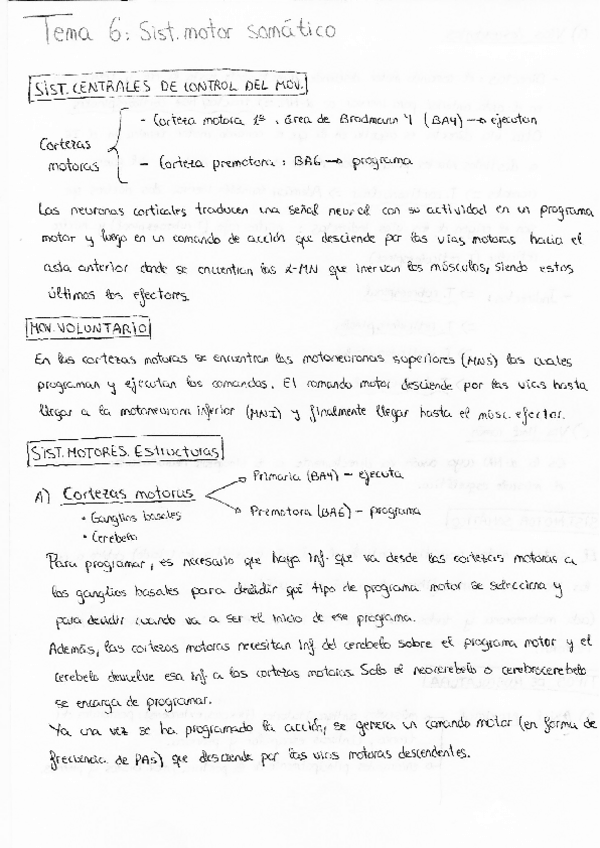 Tema 6: Sist. motor somático
SIST. CENTRALES DE CONTROL DEL MOV.
Cortezas motoras
- Corteza motora 1ª: área de Brodmann 4 (BA4) → ejecutan
- Corteza premotora: BA6 → programa
Las neuronas corticales traducen una señal neural con su actividad en un programa
motor y luego en un comando de acción que desciende por las vías motoras hacia el
asta anterior donde se encuentran las α-MN que inervan los músculos, siendo estos
últimos los efectores.
MOV. VOLUNTARIO
En las cortezas motoras se encuentran las motoneuronas superiores (MNS) las cuales
programan y ejecutan los comandos. El comando motor desciende por las vías hasta
llegar a la motoneurona inferior (MNI) y finalmente llegar hasta el músc. efector.
SIST. MOTORES. Estructuras
A) Cortezas motoras
Primaria (BA4) - ejecuta
Premotora (BA6) - programa
• Ganglios basales
• Cerebelo
Para programar, es necesario que haya inf. que va desde las cortezas motoras a
los ganglios basales para decidir qué tipo de programa motor se selecciona y
para decidir cuando va a ser el inicio de ese programa.
Además, las cortezas motoras necesitan inf del cerebelo sobre el programa motor y el
cerebelo devuelve esa inf a las cortezas motoras. Solo el neocerebelo o cerebrocerebelo
se encarga de programar.
Ya una vez se ha programado la acción, se genera un comando motor (en forma de
frecuencia de PAs) que desciende por las vías motoras descendentes.